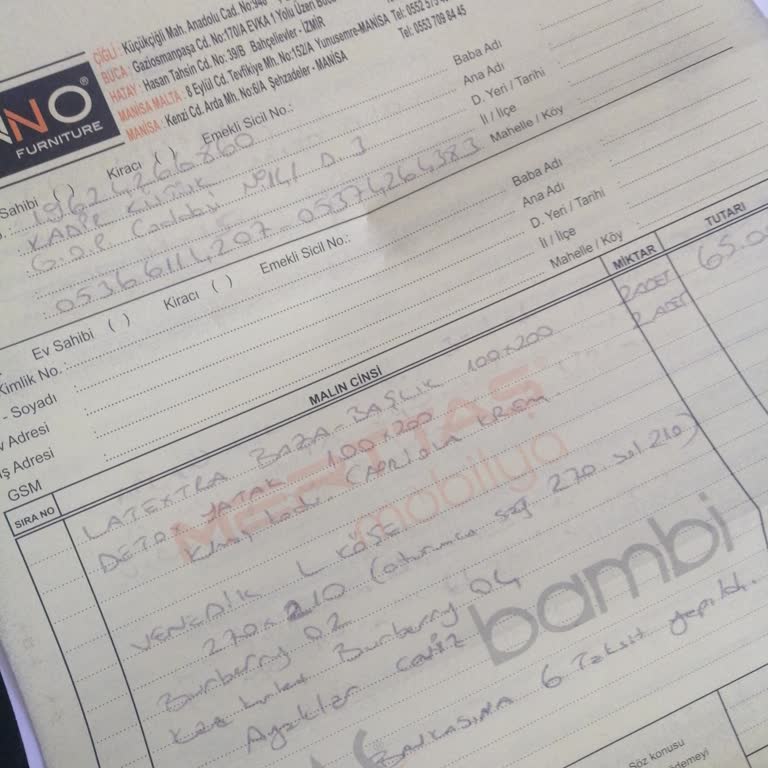 ÇİĞLİ : Küçükçiğli Mah. Anadolu Cad. No:940
BUCA : Gaziosmanpaşa Cd. No:170/A EVKA 1 Yolu Üzeri Buca
HATAY : Hasan Tahsin Cd. No: 39/B Bahçelievler - İZMİR
MANİSA MALTA : 8 Eylül Cd. Tevfikiye Mh. No:152/A Yunusemre-MANİSA Tel: 0552 573
MANİSA : Kenzi Cd. Arda Mh. No:6/A Şehzadeler - MANİSA Tel: 0553 709 84 45
NNO®
FURNITURE
Sahibi ( ) Kiracı ( ) Emekli Sicil No.: Baba Adı
19624266860 Ana Adı
KADİR D. Yeri / Tarihi
G.O.P. No 141 D. 3 İl / İlçe
05366114207 - 05374264383 Mahelle / Köy
Ev Sahibi ( ) Kiracı ( ) Emekli Sicil No:: Baba Adı
Kimlik No. Ana Adı
- Soyadı D. Yeri / Tarihi
Adresi İl / İlçe
İş Adresi Mahelle / Köy
GSM
SIRA NO MALIN CİNSİ MİKTAR TUTARI
LATEXTRA BAZA-BAŞLIK 100x200 2 ADET 65.0
DETOX YATAK 100x200 2 ADET
CAPRIOLA KREM
MERTTAŞ
mobilya
VENEDİK L KÖŞE
270x210 (oturunca sağ 270 sol 210)
Burberry 02
Burberry 04
Ayaklar ceviz
bambi
BANKASINA 6 Taksit yapıldı.
Söz konusu
ödemeyi